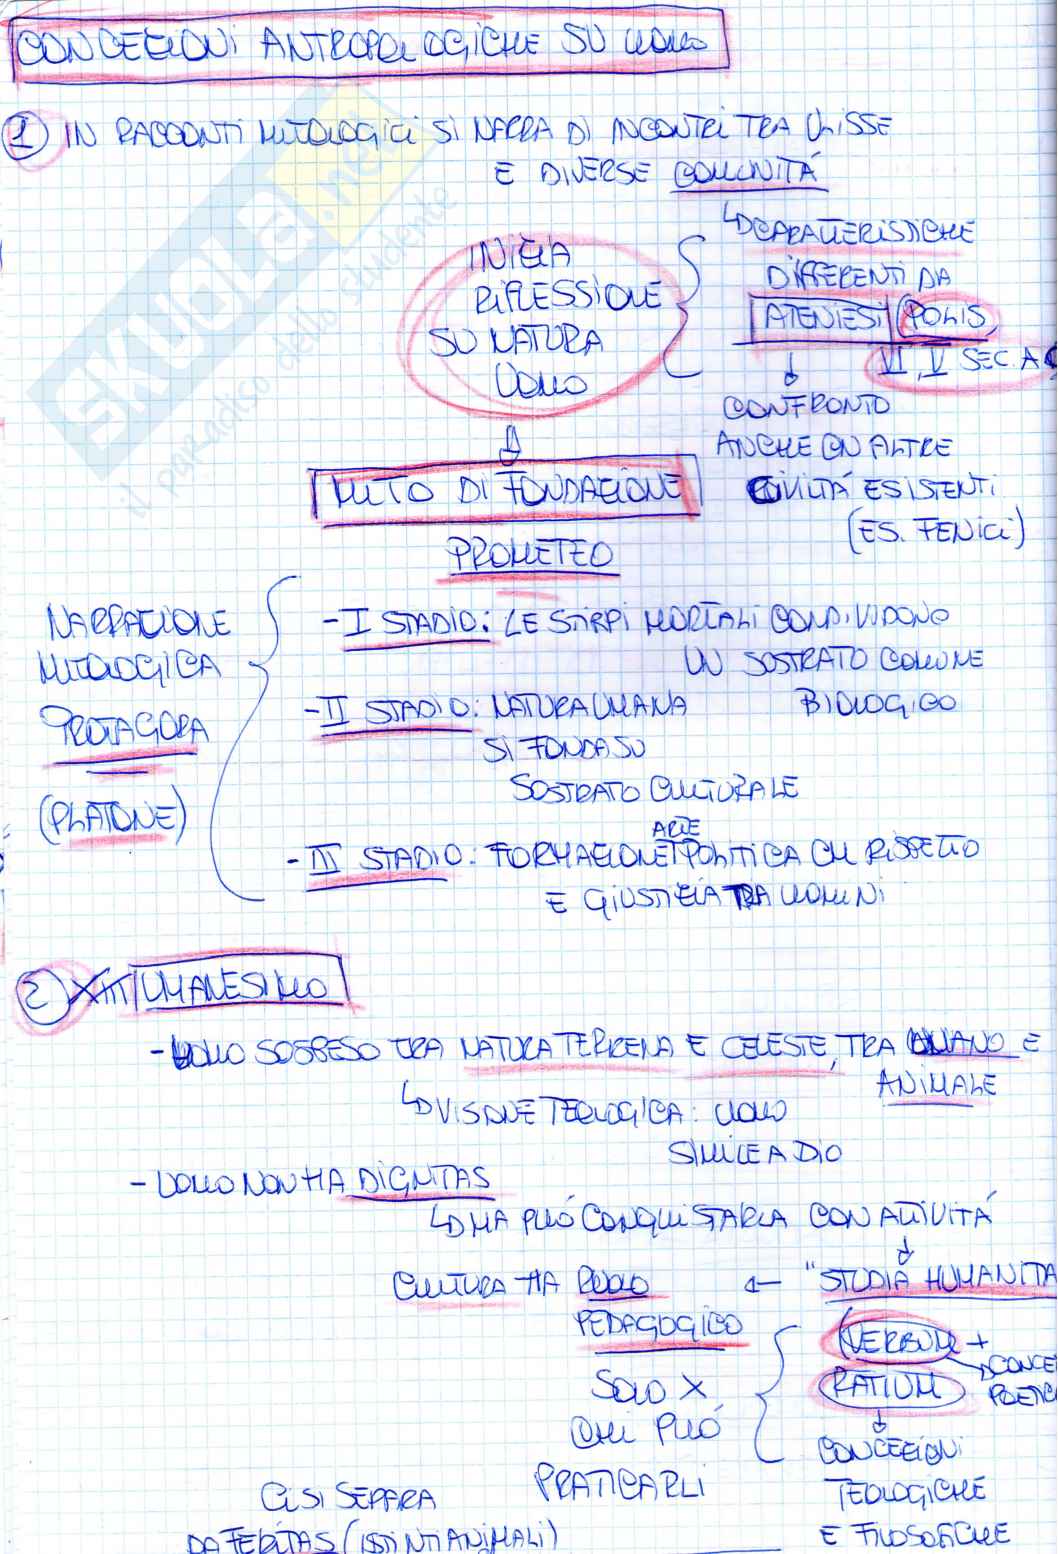 CONCEZIONI ANTROPOLOGICHE SU UOMO
1 IN RACCONTI MITOLOGICI SI NARRA DI INCONTRI TRA ULISSE
E DIVERSE COMUNITÁ
CARATTERISTICHE
DIFFERENTI DA
ATENIESI (POLIS,
VI, V SEC. A
CONFRONTO
ANCHE CON ALTRE
CIVILTÁ ESISTENTI
(ES. FENICI)
INIZIA
RIFLESSIONE
SU NATURA
UOMO
MITO DI FONDAZIONE
PROMETEO
NARRAZIONE
MITOLOGICA
PROTAGORA
(PLATONE)
- I STADIO: LE STIRPI MORTALI CONDIVIDONO
UN SOSTRATO COMUNE
BIOLOGICO
- II STADIO: NATURA UMANA
SI FONDA SU
SOSTRATO CULTURALE
ARTE
- III STADIO: FORMAZIONE POLITICA CN RISPETTO
E GIUSTIZIA TRA UOMINI
2 UMANESIMO
- UOMO SOSPESO TRA NATURA TERRENA E CELESTE, TRA UMANO E
ANIMALE
VISIONE TEOLOGICA: UOMO
SIMILE A DIO
- UOMO NON HA DIGNITAS
MA PUÓ CONQUISTARLA CON ATTIVITÁ
CULTURA HA RUOLO ← "STUDIA HUMANITA
PEDAGOGICO
(VERBUM +
CONCE
POETIC
RATIUM
SOLO X
CHI PUÓ
PRATICARLI
CONCEZIONI
TEOLOGICHE
E FILOSOFICHE
CI SI SEPARA
DA FERITAS (ISTINTI ANIMALI)
SKUOLA.net
il paradiso dello studente